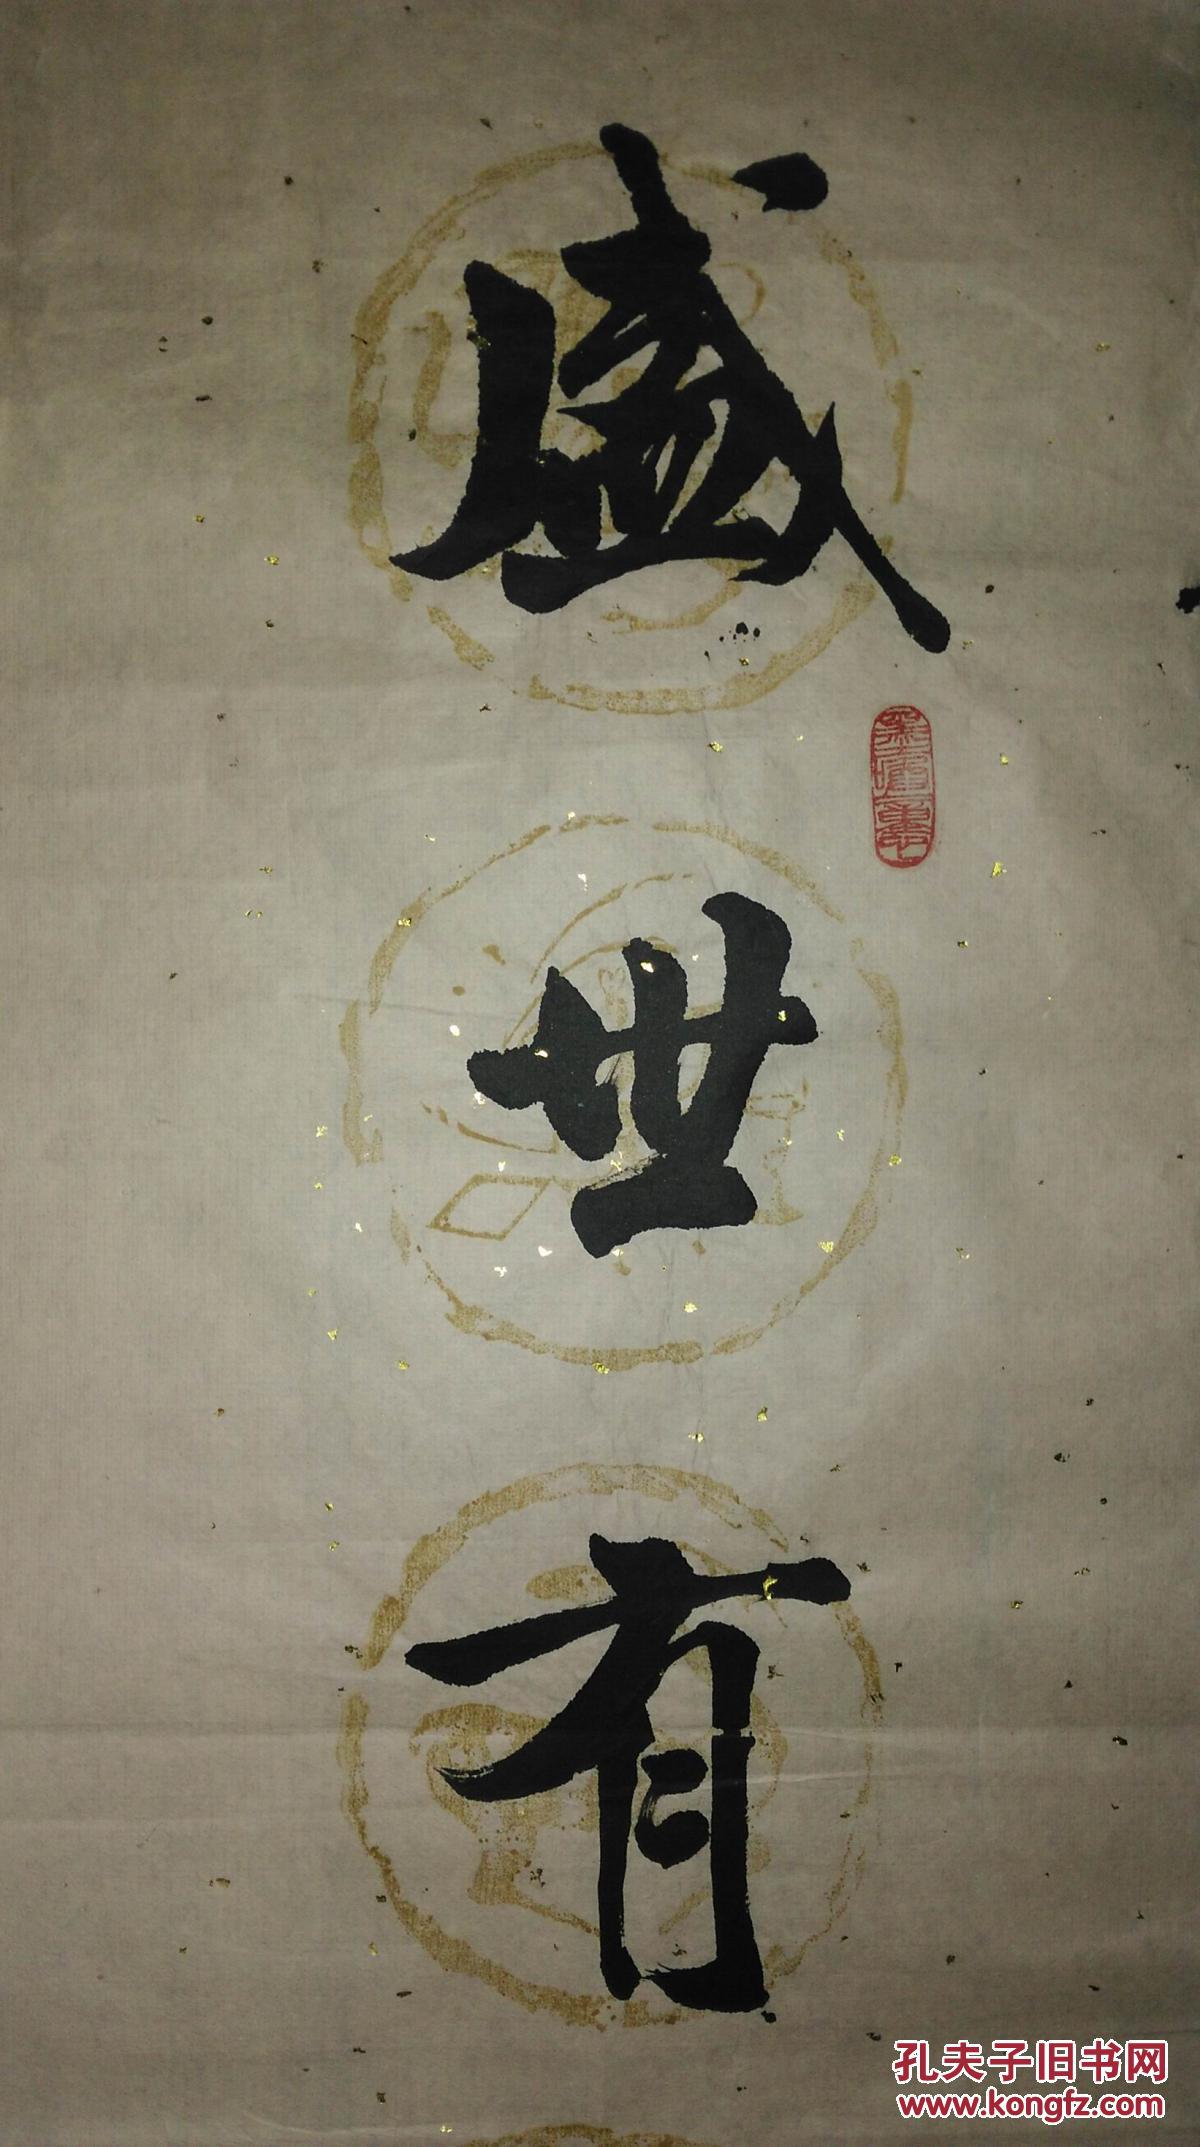 盛世有
孔夫子旧书网
www.kongfz.com